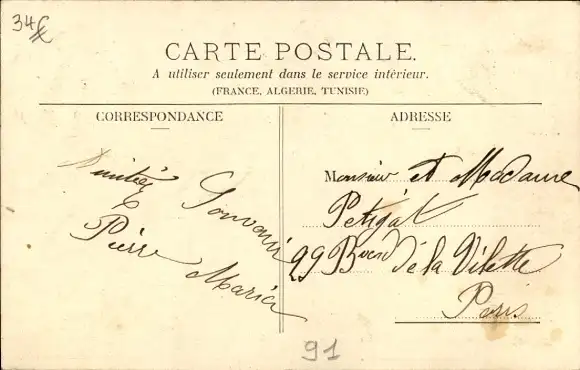 34
CARTE POSTALE.
A utiliser seulement dans le service intérieur.
(FRANCE, ALGERIE, TUNISIE)
CORRESPONDANCE
Amitiés
Souvenir
Pierre Maria
ADRESSE
Monsieur et Madame
Petigat
29 Bverd de la Vilette
Paris
91